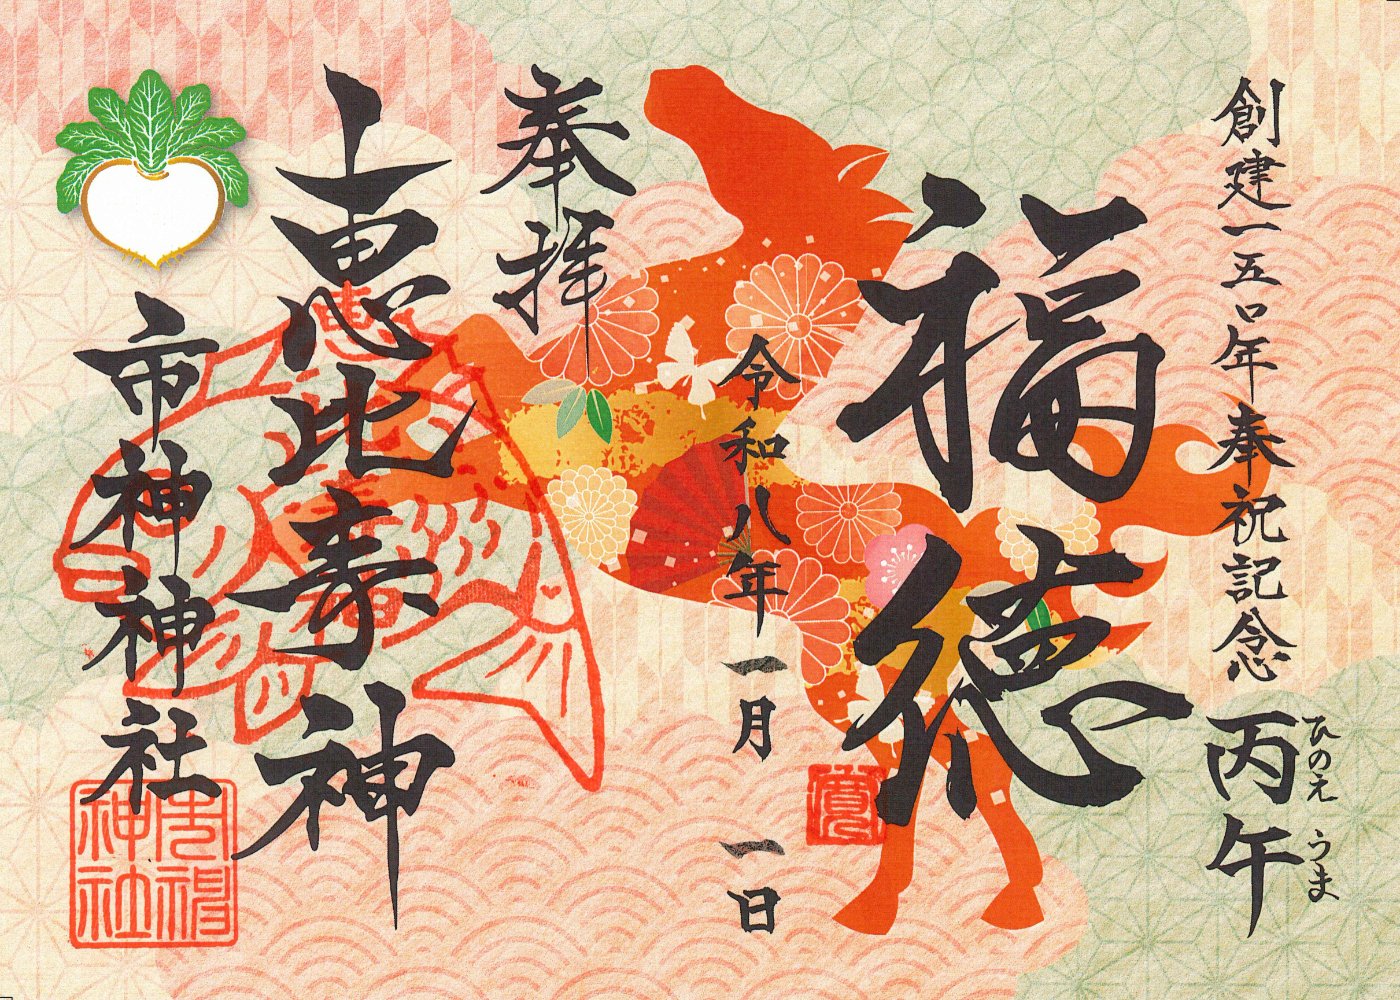 創建一五〇年奉祝記念
丙午
ひのえ うま
福徳
令和八年一月一日
奉拝
恵比寿神
市神神社
市神神社